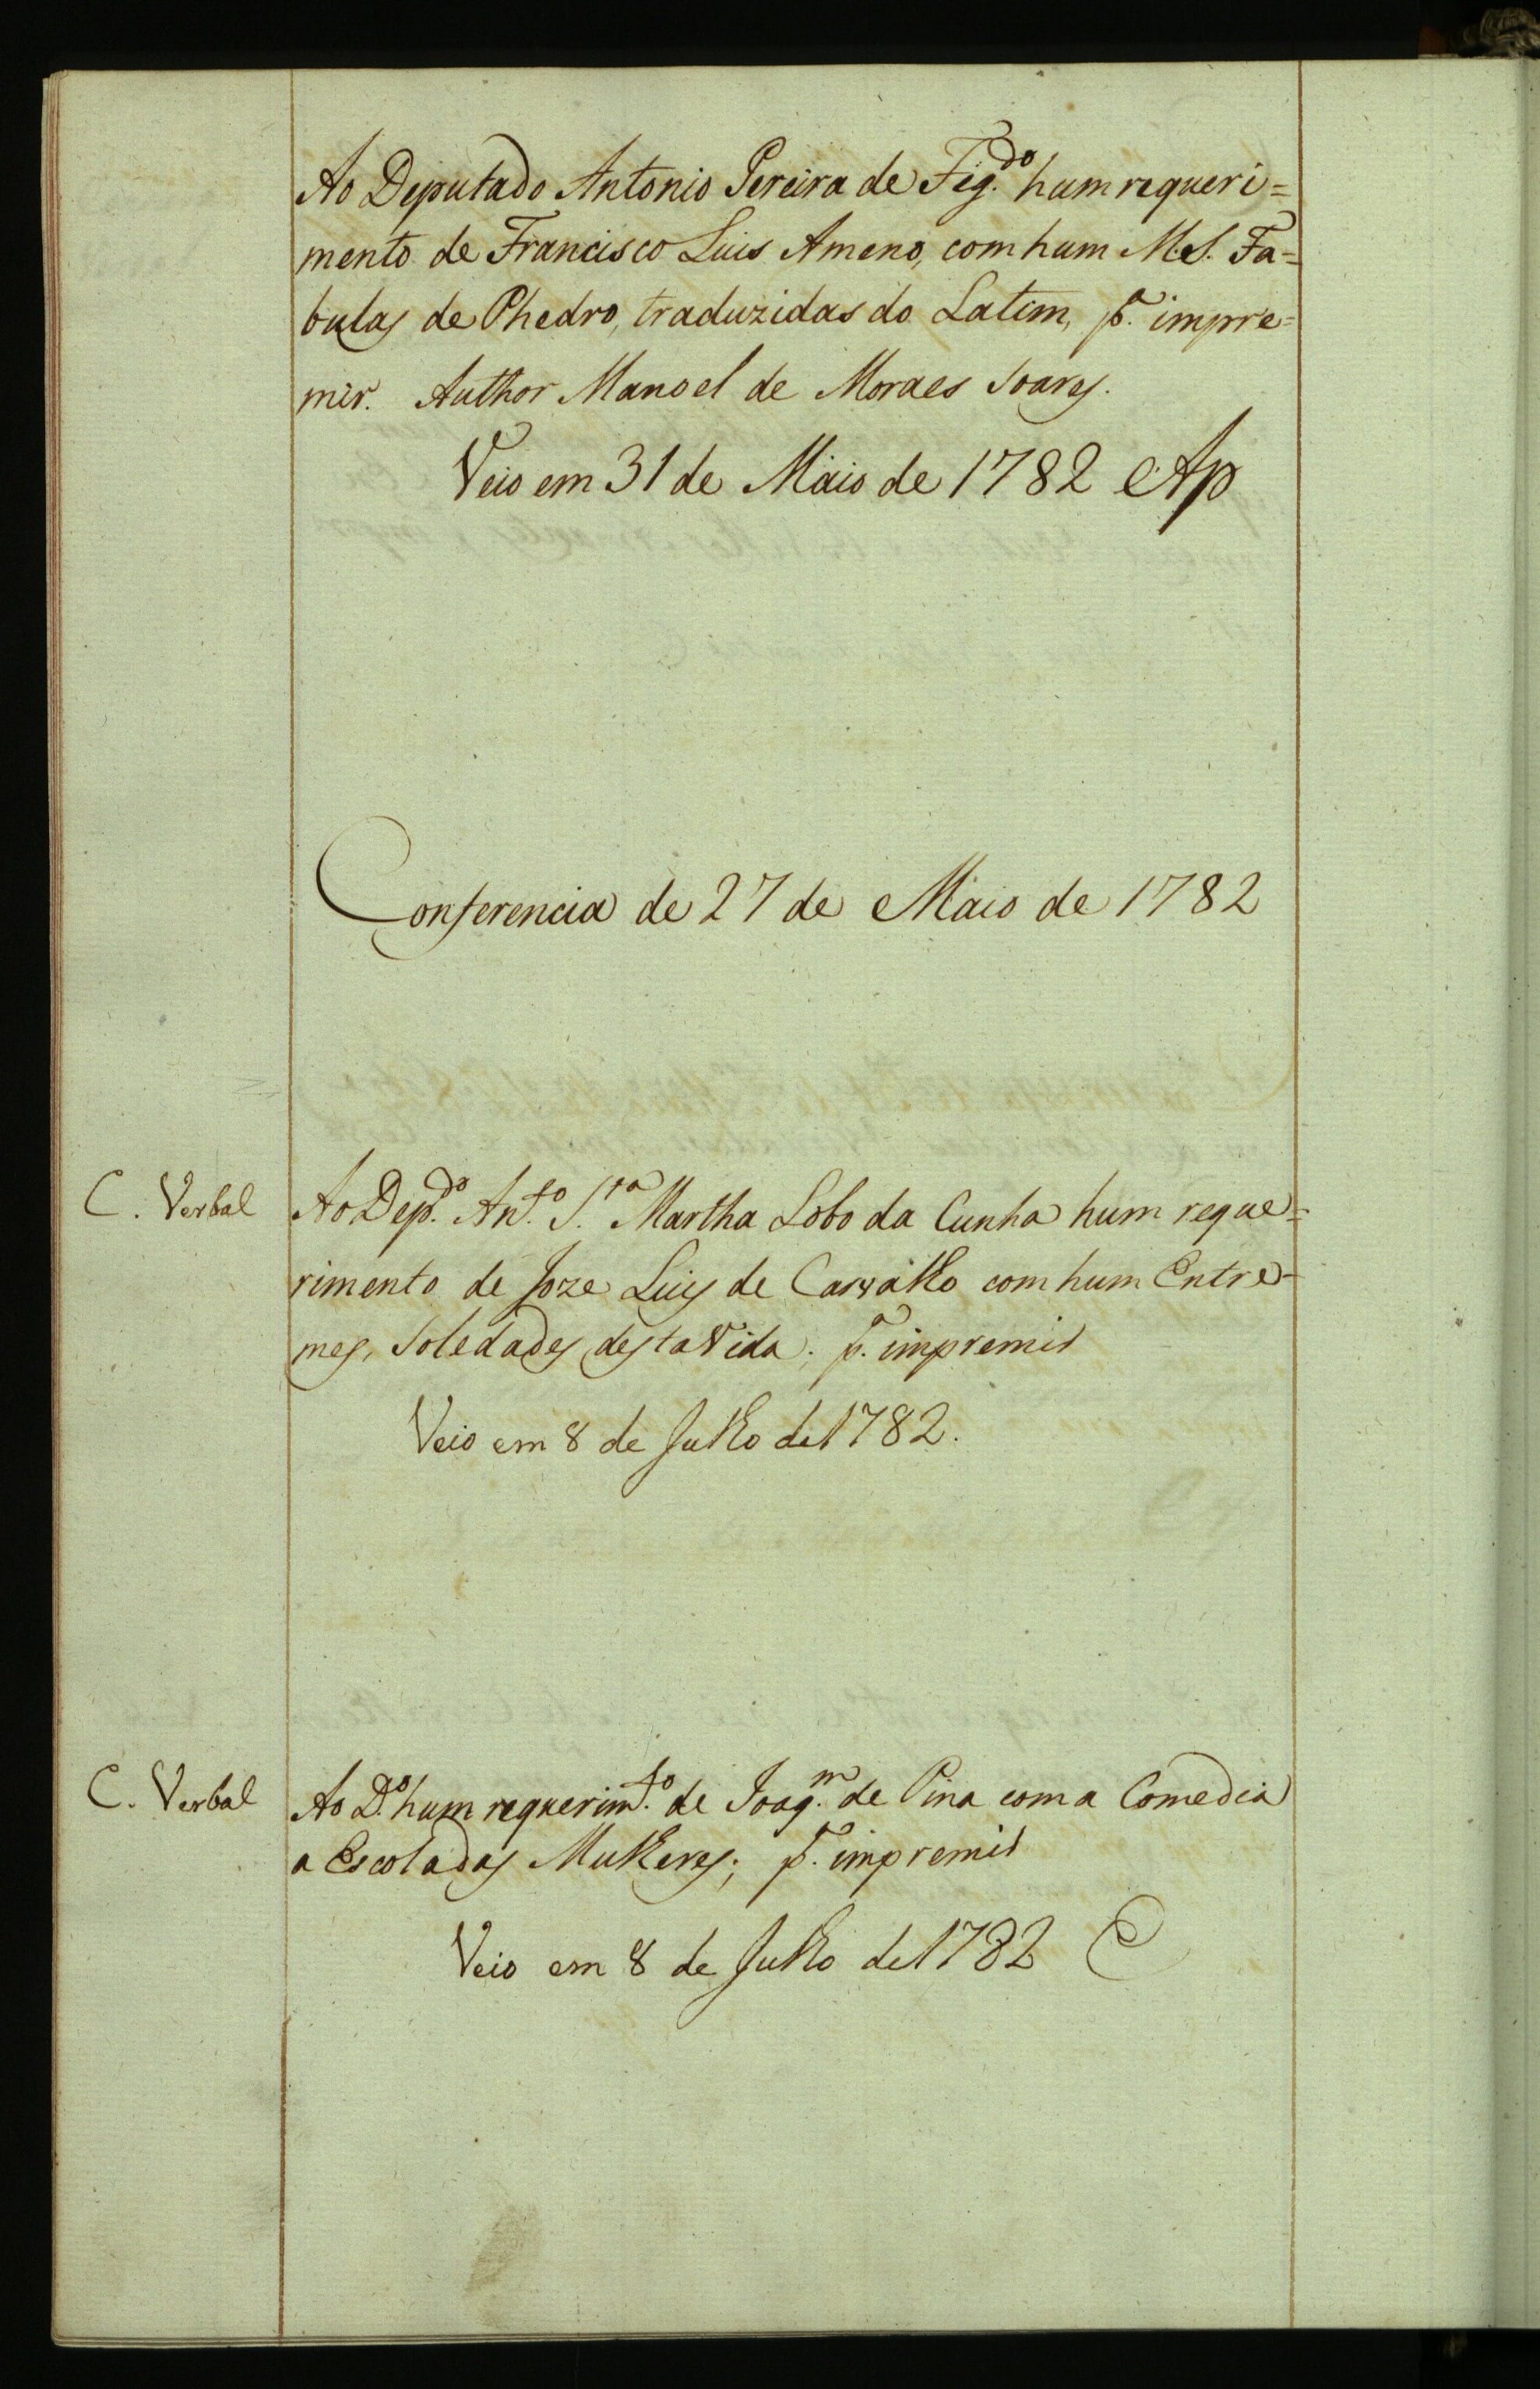 Ao Deputado Antonio Pereira de Fig.do hum requeri=
mento de Francisco Luis Ameno, com hum M.S. Fa=
bulas de Phedro, traduzidas do Latim, p.a impre=
mir. Author Manoel de Moraes Soares.
Veio em 31 de Maio de 1782 Ap
Conferencia de 27 de Maio de 1782
C. Verbal
Ao Dep.do Ant.o S.ta Martha Lobo da Cunha hum reque=
rimento de Joze Luis de Carvalho com hum Entre=
mes, Soledades desta Vida. p.a impremir
Veio em 8 de Julho de 1782.
C. Verbal
Ao D.o hum requerim.to de Joaq.m de Pina com a Comedia
a Escola das Mulheres; p.a impremir
Veio em 8 de Julho de 1782 C